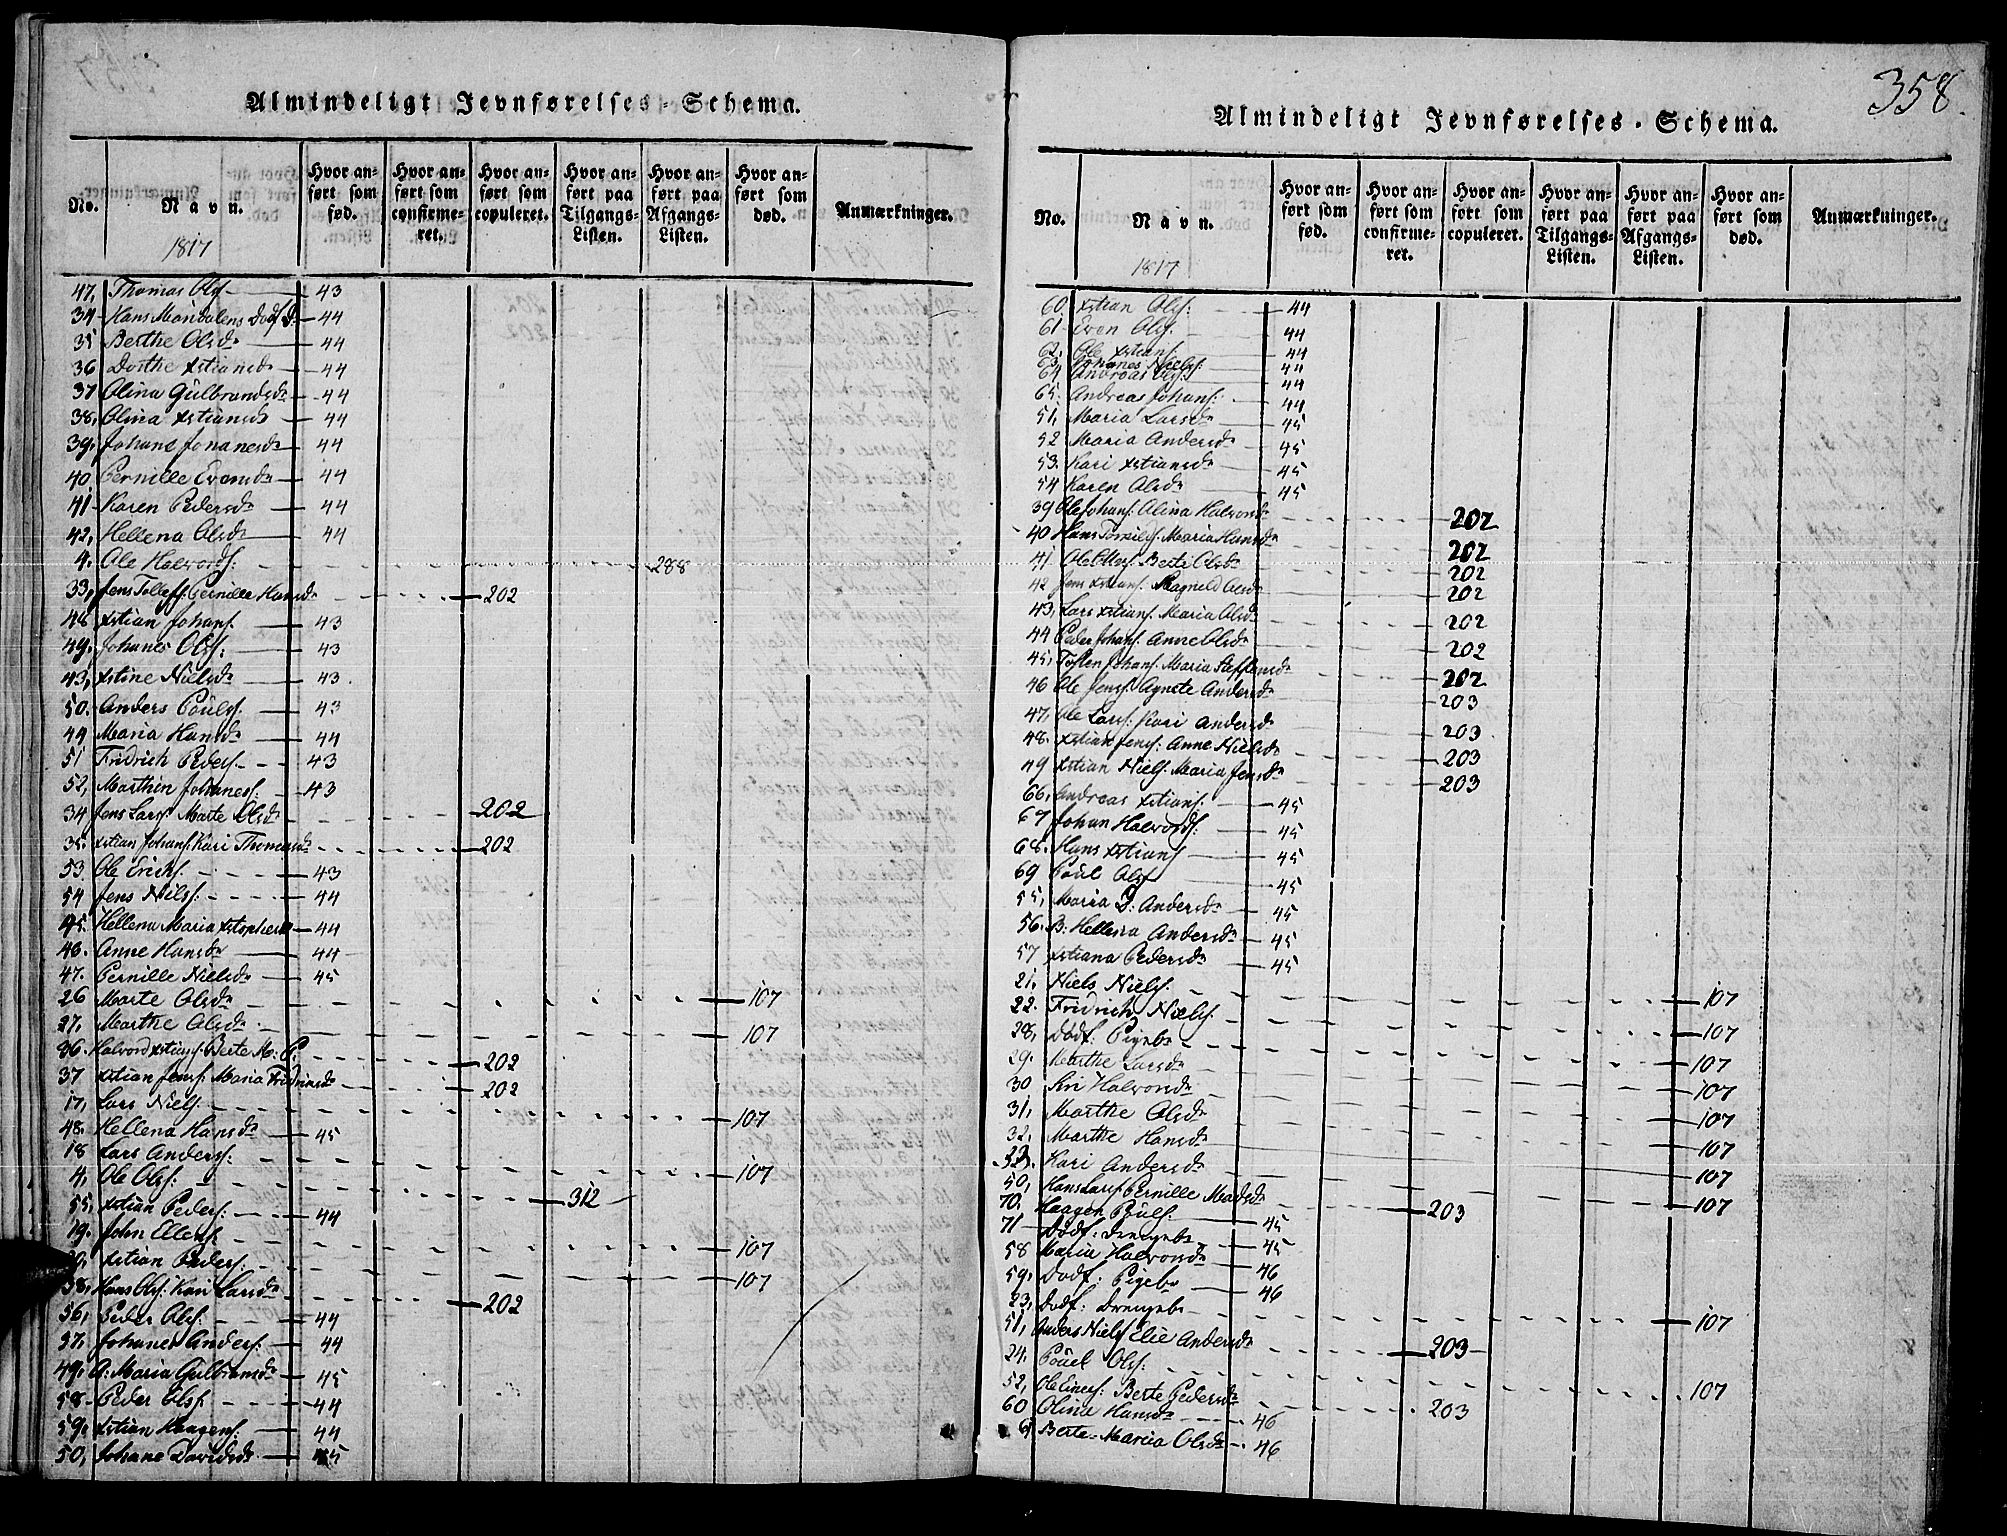 Almindeligt Jevnførelses-Schema.
No. Navn. Hvor anført som fød. Hvor anført som confirmeret. Hvor anført som copuleret. Hvor anført paa Tilgangs-Listen. Hvor anført paa Afgangs-Listen. Hvor anført som død. Anmærkninger.
1817
47, Thomas Ols. 43
34 Hans Mandalens Dødf D: 44
35 Berthe Olsdr 44
36 Dorthe Xstiansdr 44
37 Olina Gulbrandsdr 44
38, Olina Xstiansdr 44
39, Johane Johanesdr 44
40, Pernille Evensdr 44
41 Karen Pedersdr 44
42, Hellena Olsdr 44
4. Ole Halvords: 288
33, Jens Tollefs: Pernille Hansdr 202
48 Xstian Johans. 43
49. Johanes Ols: 43
43, Xstine Nielsdr 43.
50. Anders Pouls. 43
44 Maria Hansdr 44
51 Fridrich Peders. 43
52, Marthin Johaness. 43
34 Jens Lars: Marte Olsdr 202
35. Xstian Johans: Kari Thomasdr 202
53 Ole Erichs. 43
54 Jens Nils: 44
45. Hellena Maria Xstophersdr 44
46. Anne Hansdr 44
47. Pernille Nielsdr 45
26 Marte Olsdr 107
27. Marthe Olsdr 107
36. Halvord Xstians: Berte M: P. 202
37 Xstian Jens: Maria Fridrichsdr 202
17, Lars Niels. 107
48. Hellena Hansdr 45
18 Lars Anders: 107
4, Ole Ols: 312
55. Xstian Peders: 44
19. John Ellens. 107
20, Xstian Peders: 107
38, Hans Ols: Kari Larsdr 202
56, Peder Ols: 44
57. Johanes Anders: 44
49. A: Maria Gulbransdr 45
58 Peder Ols. 44
59. Xstian Haagens: 44
50, Johane Davidsdr 45
358.
Almindeligt Jevnførelses-Schema.
No. Navn. Hvor anført som fød. Hvor anført som confirmeret. Hvor anført som copuleret. Hvor anført paa Tilgangs-Listen. Hvor anført paa Afgangs-Listen. Hvor anført som død. Anmærkninger.
1817
60. Xstian Ols: 44
61 Even Ols: 44
62. Ole Xstians: 44
63. Johanes Niels: 44
64 Andreas Ols: 44
65. Andreas Johans: 44
51, Maria Larsdr 45
52 Maria Andersdr 45
53. Kari Xstiansdr 45
54 Karen Olsdr 45
39 Ole Johans: Olina Halvordsdr 202
40 Hans Maria Hansdr 202
41 Ole Berte Olsdr 202
42 Jens Xstians: Magnild Olsdr 202
43, Lars Xstians: Maria Olsdr 202
44 Peder Johans: Anne Olsdr 202
45, Tosten Johans. Maria Steffensdr 202
46 Ole Jens: Agnete Andersdr 203
47, Ole Lars: Kari Andersdr 203
48. Xstian Jens: Anne Nielsdr 203
49 Xstian Niels: Maria Jensdr 203
66, Andreas Xstians: 45
67 Johan Halvords: 45
68. Hans Xstians 45
69 Poul Ols. 45
55, Maria D: Andersdr 45
56. B: Hellena Andersdr 45
57 Xstiana Pedersdr 45
21. Niels Niels. 107
22. Fridrich Niels. 107
28, Dødf: Pigebn 107
29. Marthe Larsdr 107
30 Siri Halvordr 107
31, Marthe Olsdr 107
32, Marthe Hansdr 107
33. Kari Andersdr 107
50, Hans Lars: Pernille Madsdr 203
70, Haagen Pouls. 45
71 Dødf: Drengebn 45
58 Maria Halvordr 46
59. Dødf: Pigebn 46
23, Dødf: Drengebn 107
51, Anders Niels Elie Andersdr 203
24. Pouel Ols: 107
52, Ole Einers: Berte Pedersdr 203
60 Olina Hansdr 46
61 Berte Maria Olsdr 46